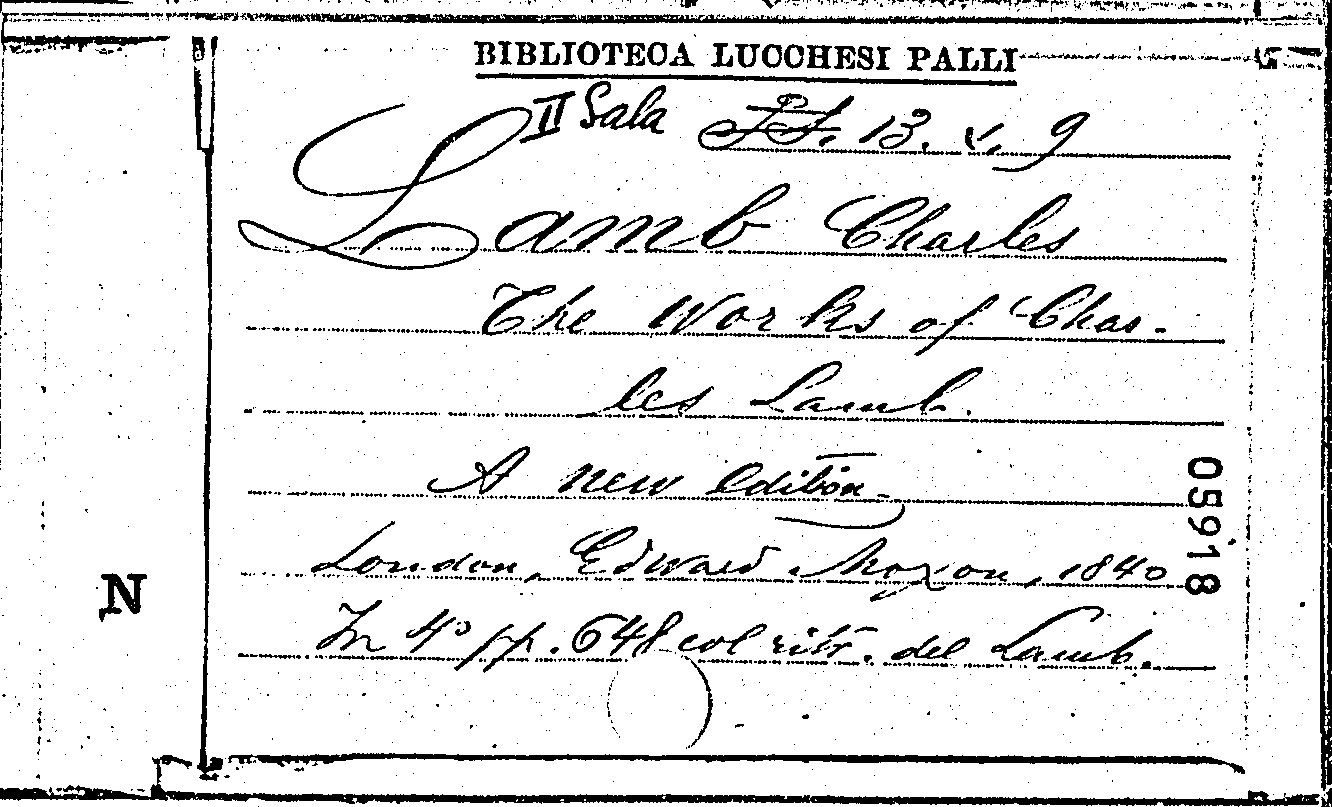 BIBLIOTECA LUCCHESI PALLI
II Sala 13. v. 9
Lamb Charles
The Works of Char-
les Lamb.
A new edition
London, Edward Moxon, 1840
In 4° pp. 648 col ritr. del Lamb.
N
05918